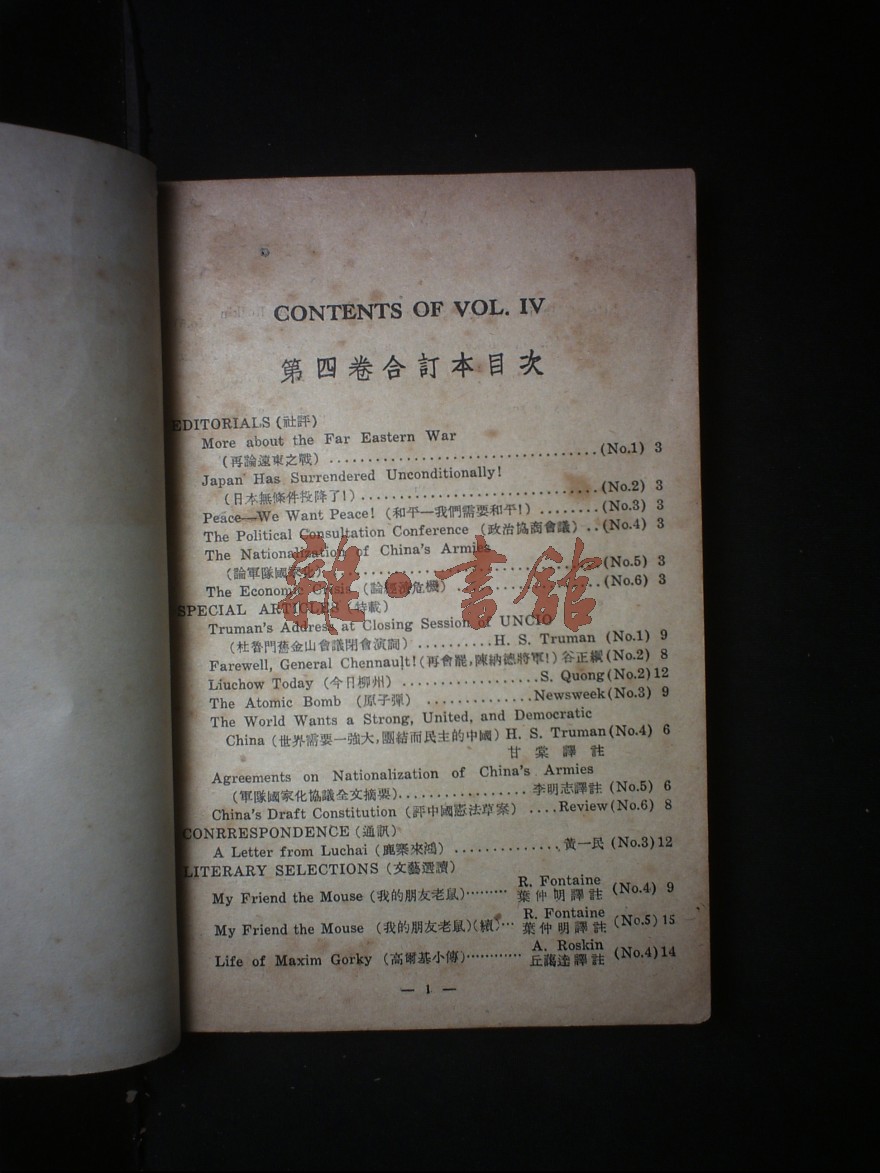 CONTENTS OF VOL. IV
第四卷合訂本目次
EDITORIALS (社評)
More about the Far Eastern War
(再論遠東之戰) ..................................(No.1) 3
Japan Has Surrendered Unconditionally!
(日本無條件投降了!) ..............................(No.2) 3
Peace—We Want Peace! (和平—我們需要和平!) ........(No.3) 3
The Political Consultation Conference (政治協商會議) ..(No.4) 3
The Nationalization of China's Armies
(論軍隊國家化) ..................................(No.5) 3
The Economic Crisis (論經濟危機) ..................(No.6) 3
SPECIAL ARTICLES (特載)
Truman's Address at Closing Session of UNCIO
(杜魯門舊金山會議閉會演詞) ..........H. S. Truman (No.1) 9
Farewell, General Chennault! (再會罷,陳納德將軍!) 谷正綱(No.2) 8
Liuchow Today (今日柳州) ..................S. Quong(No.2) 12
The Atomic Bomb (原子彈) ..............Newsweek(No.3) 9
The World Wants a Strong, United, and Democratic
China (世界需要一強大,團結而民主的中國) H. S. Truman(No.4) 6
甘棠譯註
Agreements on Nationalization of China's Armies
(軍隊國家化協議全文摘要)................李明志譯註 (No.5) 6
China's Draft Constitution (評中國憲法草案) ....Review(No.6) 8
CONRRESPONDENCE (通訊)
A Letter from Luchai (鹿寨來鴻) ..............黃一民 (No.3) 12
LITERARY SELECTIONS (文藝選讀)
My Friend the Mouse (我的朋友老鼠)......... R. Fontaine 葉仲明譯註 (No.4) 9
My Friend the Mouse (我的朋友老鼠)(續)... R. Fontaine 葉仲明譯註 (No.5) 15
Life of Maxim Gorky (高爾基小傳)............ A. Roskin 丘藹達譯註 (No.4) 14
— 1 —
雜·書館